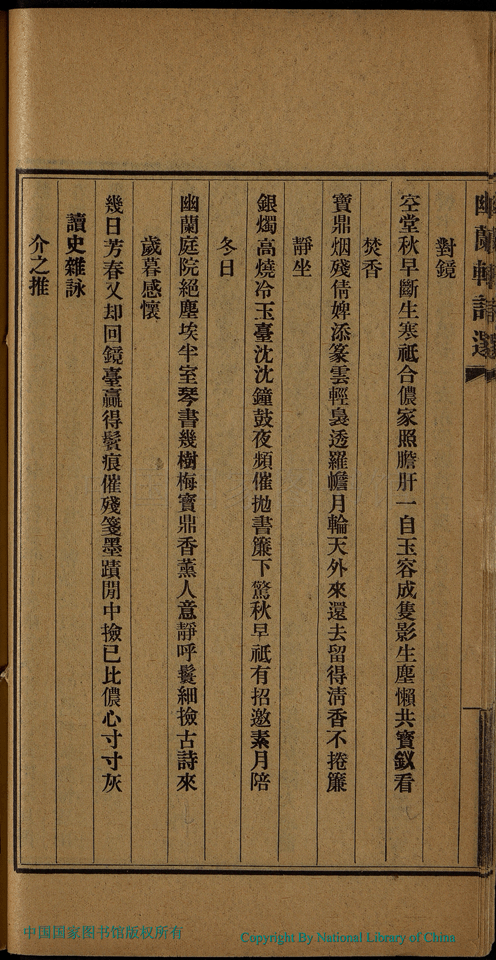 幽蘭軒詩選
對鏡
空堂秋早斷生寒祗合儂家照膽肝一自玉容成隻影生塵懶共寶釵看
焚香
寶鼎烟殘倩婢添篆雲輕裊透羅幨月輪天外來還去留得淸香不捲簾
靜坐
銀燭高燒冷玉臺沈沈鐘鼓夜頻催拋書簾下驚秋早祗有招邀素月陪
冬日
幽蘭庭院絕塵埃半室琴書幾樹梅寶鼎香薰人意靜呼鬟細撿古詩來
歲暮感懷
幾日芳春又却回鏡臺贏得鬢痕催殘箋墨蹟閒中撿已比儂心寸寸灰
讀史雜詠
介之推
中国国家图书馆版权所有
Copyright By National Library of China